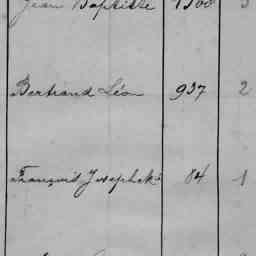 Jean Baptiste 1300 3
Bertrand Léon 937 2
François 84 1